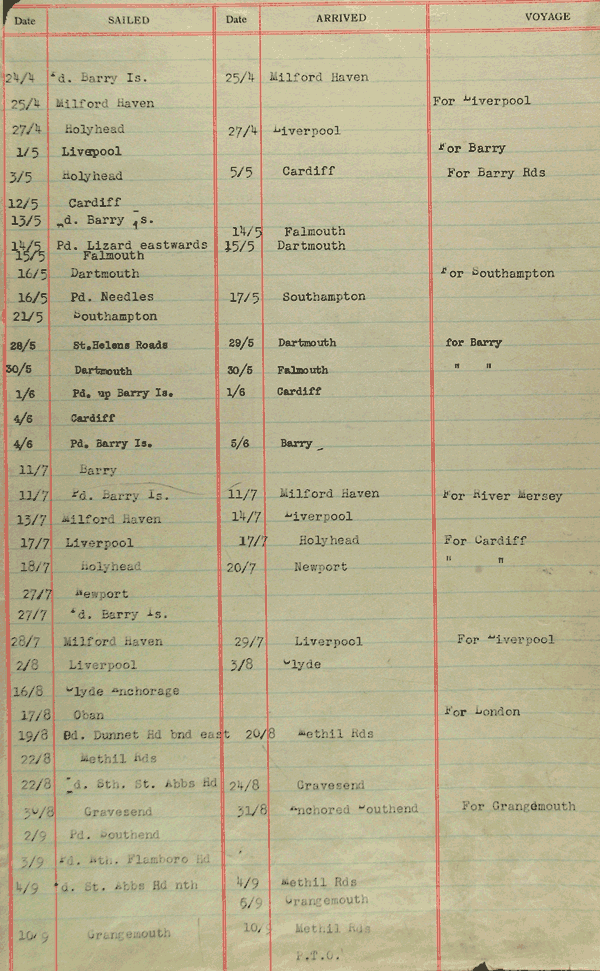 Date SAILED Date ARRIVED VOYAGE
24/4 Pd. Barry Is. 25/4 Milford Haven
25/4 Milford Haven For Liverpool
27/4 Holyhead 27/4 Liverpool
1/5 Liverpool For Barry
3/5 Holyhead 5/5 Cardiff For Barry Rds
12/5 Cardiff
13/5 Pd. Barry Is.
14/5 Falmouth
14/5 Pd. Lizard eastwards 15/5 Dartmouth
15/5 Falmouth
16/5 Dartmouth For Southampton
16/5 Pd. Needles 17/5 Southampton
21/5 Southampton
28/5 St.Helens Roads 29/5 Dartmouth for Barry
30/5 Dartmouth 30/5 Falmouth " "
1/6 Pd. up Barry Is. 1/6 Cardiff
4/6 Cardiff
4/6 Pd. Barry Is. 5/6 Barry
11/7 Barry
11/7 Pd. Barry Is. 11/7 Milford Haven For River Mersey
13/7 Milford Haven 14/7 Liverpool
17/7 Liverpool 17/7 Holyhead For Cardiff
18/7 Holyhead 20/7 Newport " "
27/7 Newport
27/7 Pd. Barry Is.
28/7 Milford Haven 29/7 Liverpool For Liverpool
2/8 Liverpool 3/8 Clyde
16/8 Clyde Anchorage
17/8 Oban For London
19/8 Pd. Dunnet Hd bnd east 20/8 Methil Rds
22/8 Methil Rds
22/8 Pd. Sth. St. Abbs Hd 24/8 Gravesend
30/8 Gravesend 31/8 Anchored Southend For Grangemouth
2/9 Pd. Southend
3/9 Pd. Nth. Flamboro Hd
4/9 Pd. St. Abbs Hd nth 4/9 Methil Rds
5/9 Grangemouth
10/9 Grangemouth 10/9 Methil Rds
P.T.O.